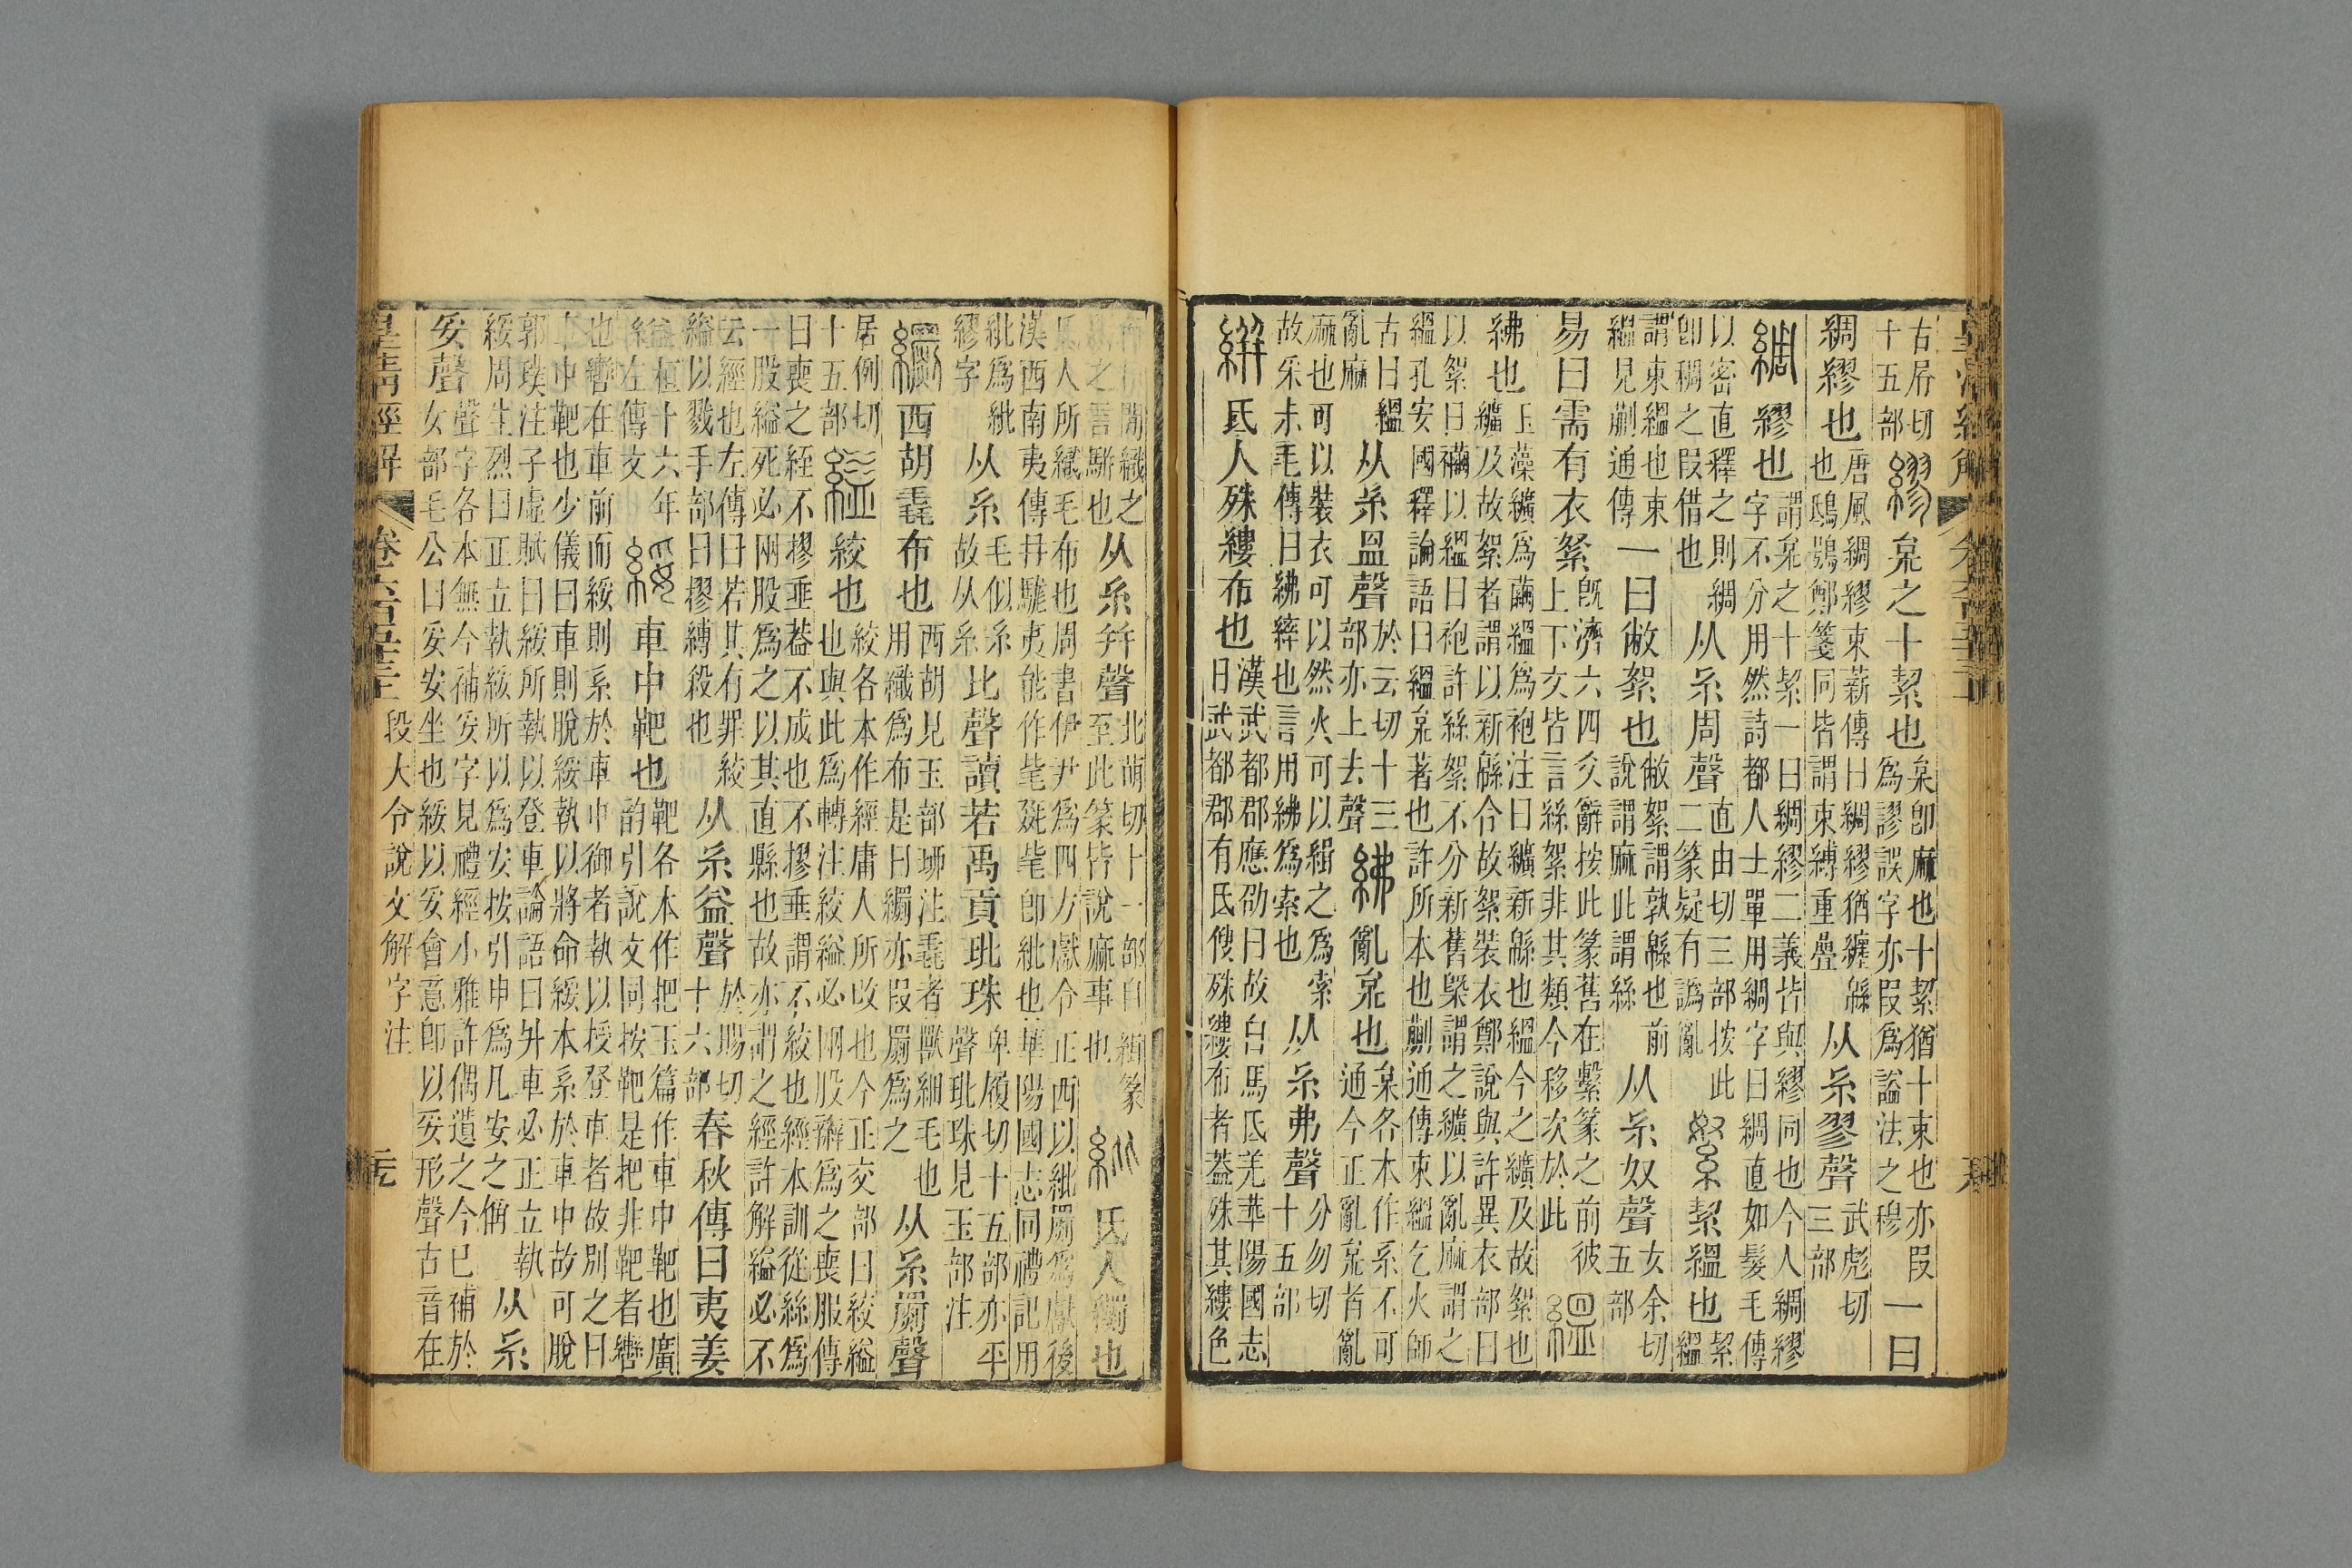 古𡲢切十五部 繆 枲之十絜也 枲卽麻也十絜猶十束也亦叚為謬誤字亦叚為謚法之穆 一曰
綢繆也 唐風綢繆束薪傳曰綢繆猶纏緜也鴟鴞鄭箋同皆謂束縛重疊 从糸翏聲 武彪切三部
綢 繆也 謂枲之十絜一曰綢繆二義皆與繆同也今人綢繆字不分用然詩都人士單用綢字曰綢直如髮毛傳
以密直釋之則綢卽稠之叚借也 从糸周聲 直由切三部按此二篆疑有譌亂 䋈 絜縕也 絜縕
謂束縕也束縕見蒯通傳 一曰敝絮也 敝絮謂孰緜也前說謂麻此謂絲 从糸奴聲 女余切五部
易曰需有衣䋈 旣濟六四爻辭按此篆舊在繫篆之前彼上下文皆言絲絮非其類今移次於此 縕
紼也 玉藻纊為繭縕為袍注曰纊新緜也縕今之纊及故絮也纊及故絮者謂以新緜合故絮裝衣鄭說與許異衣部曰
以絮曰襺以縕曰袍許絲絮不分新舊槩謂之纊以亂麻謂之縕孔安國釋論語曰縕枲著也許所本也蒯通傳束縕乞火師
古曰縕亂麻 从糸𥁕聲 於云切十三部亦上去聲 紼 亂枲也 枲各本作系不可通今正亂枲者亂
麻也可以裝衣可以然火可以緝之為索故采未毛傳曰紼繂也言用紼為索也 从糸弗聲 分勿切十五部
絣 氐人殊縷布也 漢武都郡應劭曰故白馬氐羌華陽國志曰武都郡有氐傁殊縷布者葢殊其縷色
皇清經解
而相閒織之絣之言騈也 从糸幷聲 北萌切十一部自緝篆至此篆皆說麻事也 紕 氐人𦇧也
氐人所織毛布也周書伊尹為四方獻令正西以紕罽為獻後漢西南夷傳冄駹夷能作毞毲毞卽紕也華陽國志同禮記用
紕為紕繆字 从糸 毛似糸故从糸 比聲讀若禹貢玭珠 卑履切十五部亦平聲玭珠見玉部注
𦇧 西胡毳布也 西胡見玉部𤧛注毳者獸細毛也用織為布是曰𦇧亦叚罽為之 从糸罽聲
居例切十五部 縊 絞也 絞各本作經庸人所改也今正交部曰絞縊也與此為轉注絞縊必㒳股辮為之喪服傳
曰喪之絰不摎垂葢不成也不摎垂謂不絞也經本訓從絲為一股縊死必㒳股為之以其直縣也故亦謂之經許解縊必不
云經也左傳曰若其有罪絞縊以戮手部曰摎縛殺也 从糸益聲 於賜切十六部 春秋傳曰夷姜
縊 桓十六年左傳文 綏 車中靶也 靶各本作把玉篇作車中靶也廣韵引說文同按靶是把非靶者轡
也轡在車前而綏則系於車中御者執以授登車者故別之曰車中靶也少儀曰車則脫綏執以將命綏本系於車中故可脫
郭璞注子虛賦曰綏所執以登車論語曰升車必正立執綏周生烈曰正立執綏所以為安按引申為凡安之偁 从糸
妥聲 聲字各本無今補妥字見禮經小雅許偶遺之今已補於女部毛公曰妥安坐也綏以妥會意卽以妥形聲古音在
皇清經解 卷六百五十三 段大令說文解字注